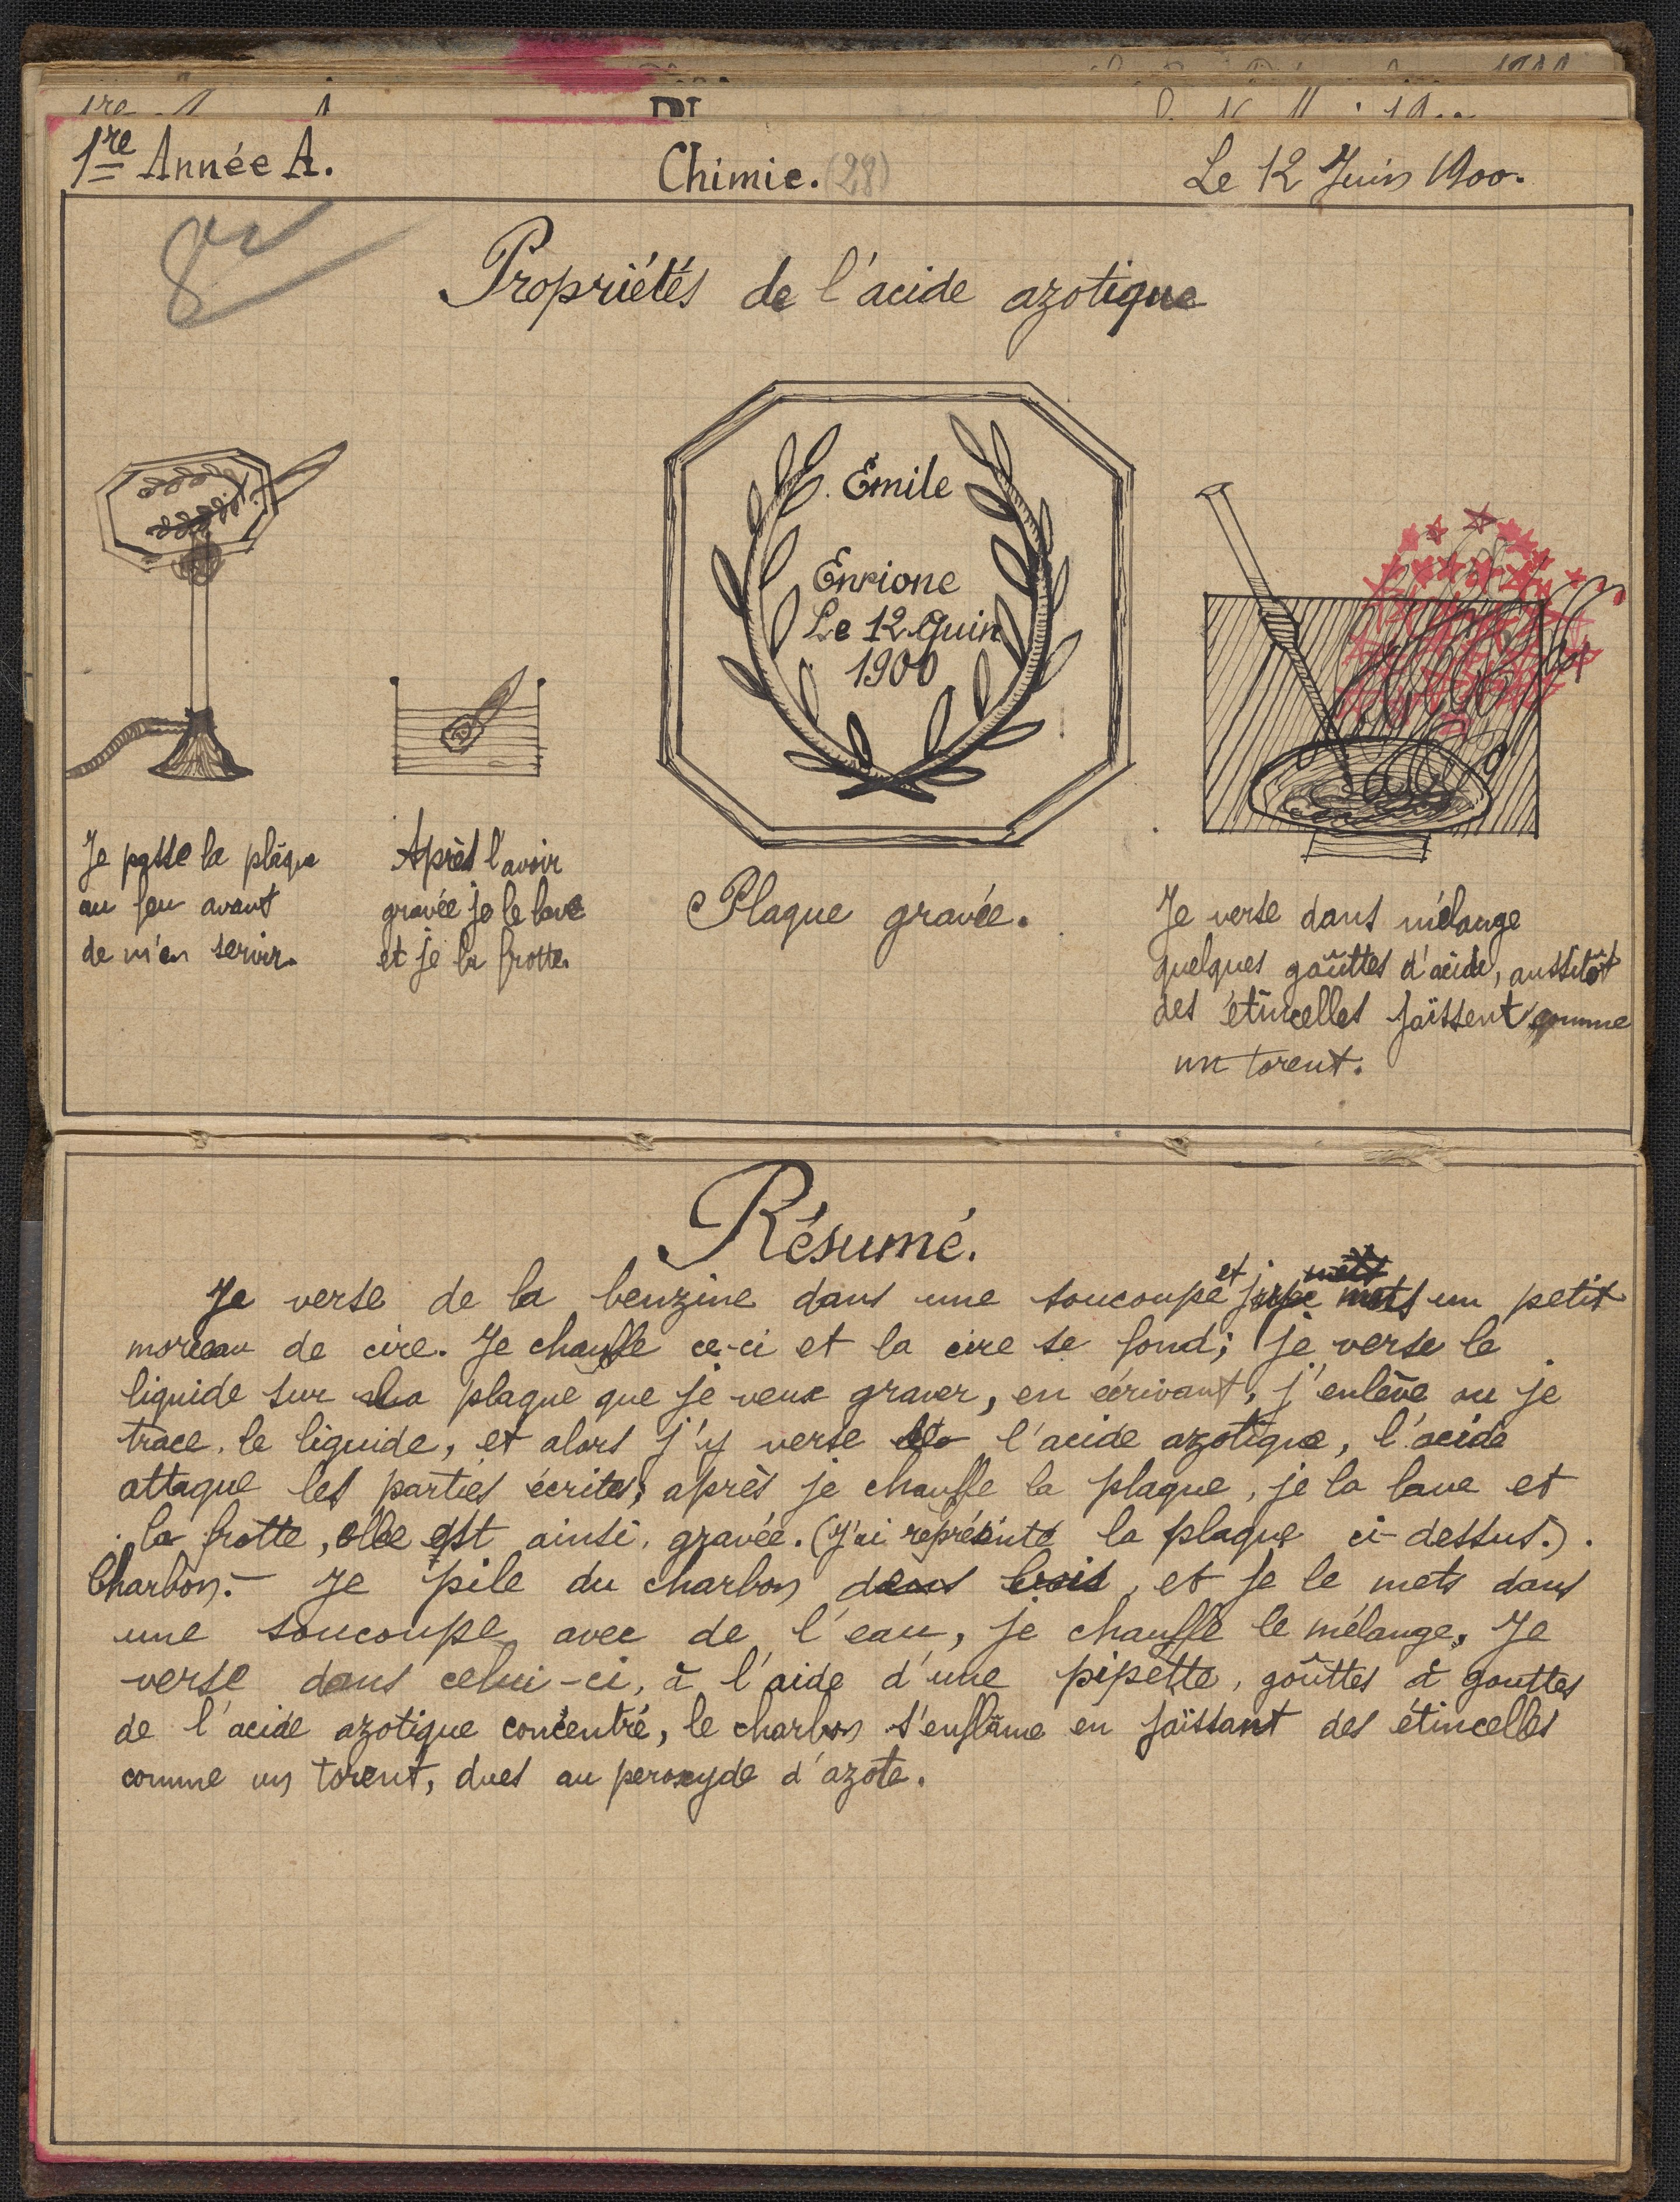 1re Année A.
Chimie. (28)
Le 12 Juin 1900.
8
Propriétés de l'acide azotique
Émile
Enrione
Le 12 Juin
1900
Je passe la plaque
au feu avant
de m'en servir.
Après l'avoir
gravée je le lave
et je la frotte.
Plaque gravée.
Je verse dans mélange
quelques goûttes d'acide, aussitôt
des étincelles jaïssent comme
un torent.
Résumé.
Je verse de la benzine dans une soucoupe et je mets un petit
morceau de cire. Je chauffe ce-ci et la cire se fond; je verse le
liquide sur la plaque que je veux graver, en écrivant, j'enlève ou je
trace le liquide, et alors j'y verse l'acide azotique, l'acide
attaque les parties écrites; après je chauffe la plaque, je la lave et
la frotte, elle est ainsi gravée. (J'ai représenté la plaque ci-dessus.).
Charbon.- Je pile du charbon dans bois, et je le mets dans
une soucoupe avec de l'eau, je chauffe le mélange. Je
verse dans celui-ci, à l'aide d'une pipette, goûttes à gouttes
de l'acide azotique concentré, le charbon s'enflâme en jaïssant des étincelles
comme un torent, dues au peroxyde d'azote.